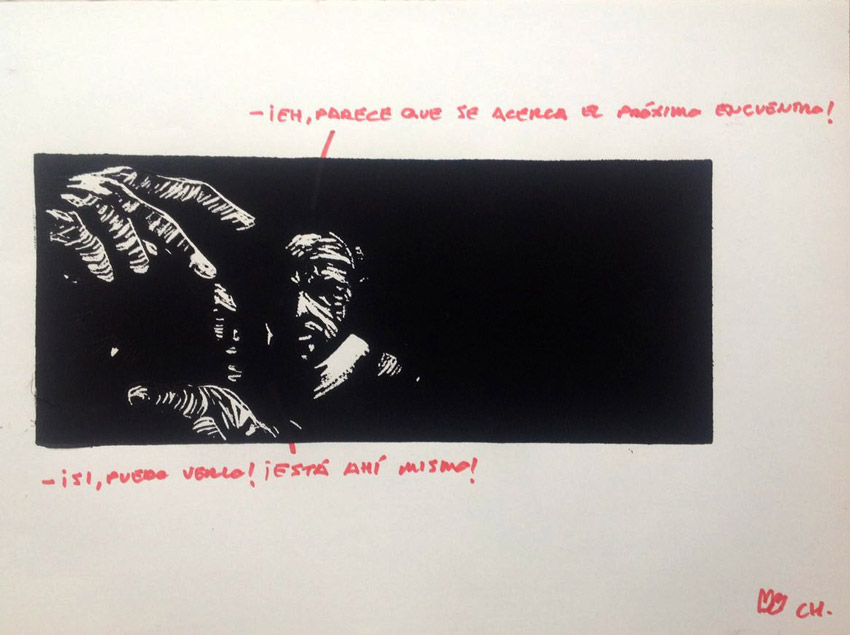 -¡EH, PARECE QUE SE ACERCA EL PRÓXIMO ENCUENTRO!
-¡SI, PUEDO VERLO! ¡ESTÁ AHÍ MISMO!
CH.